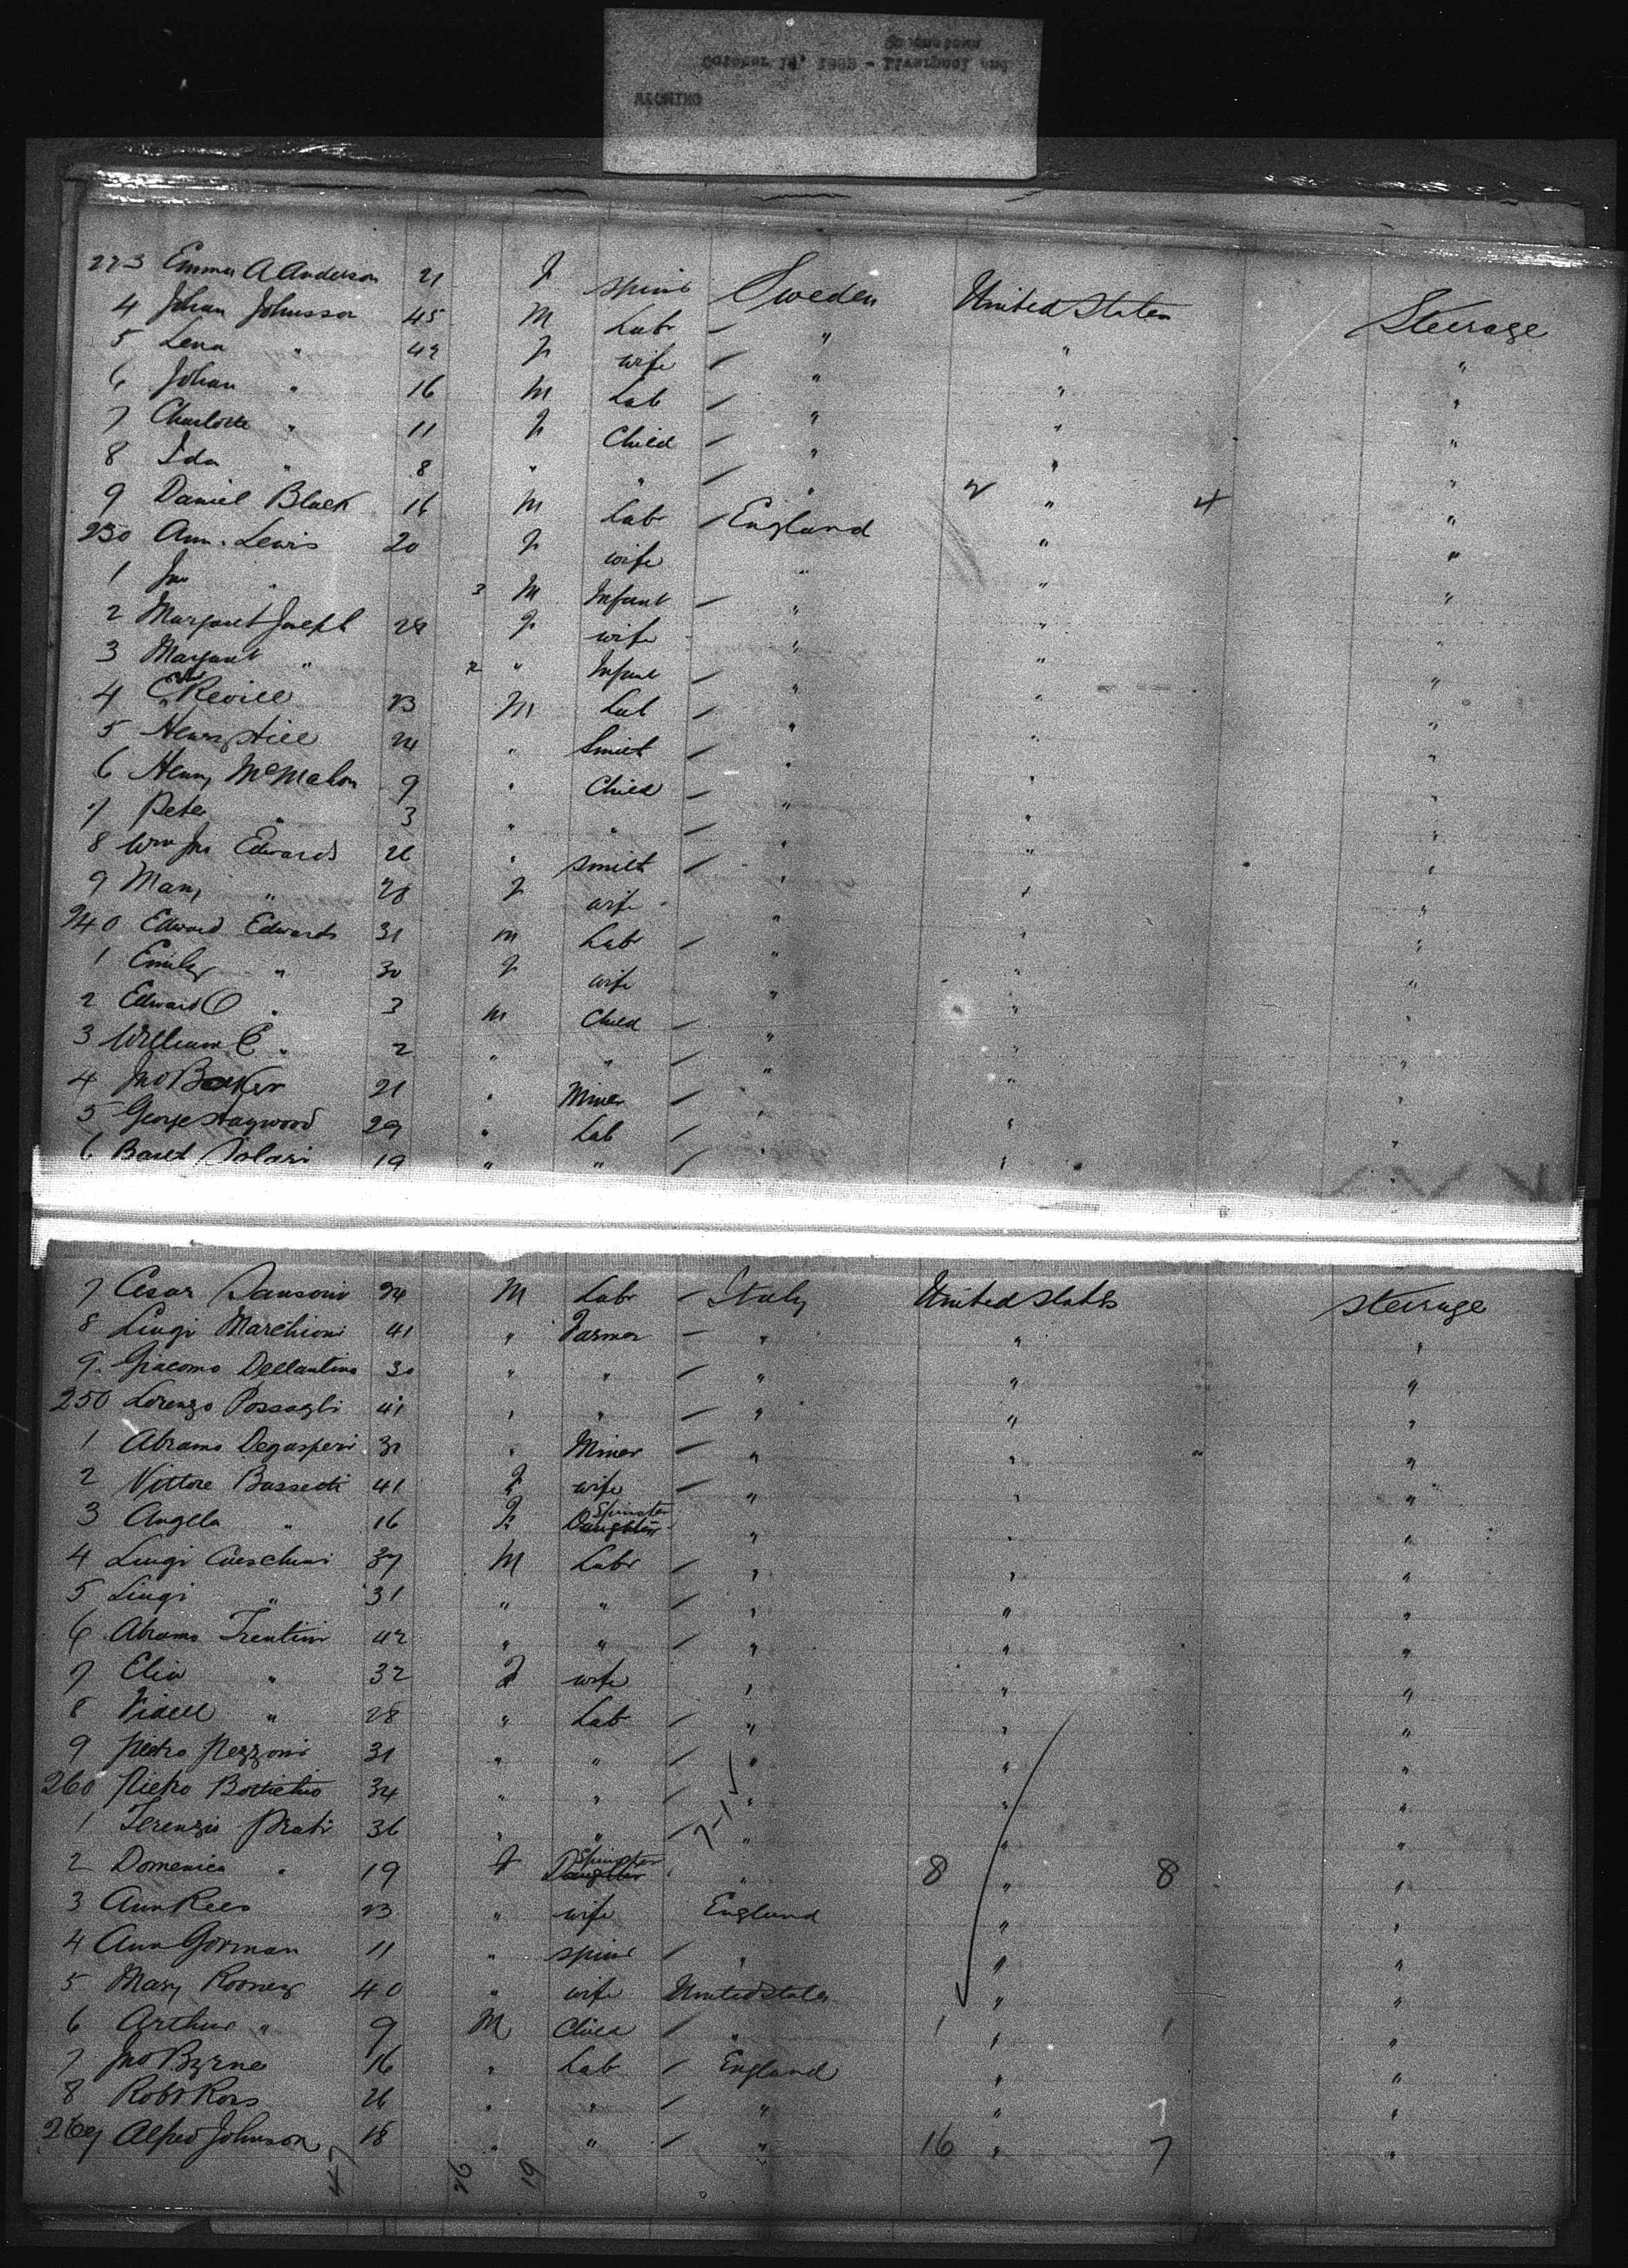 October 14, 1882 - Liverpool and
WYOMING
223 Emma A Anderson 21 F spins Sweden United States Steerage
4 Johan Johnsson 45 M Labr / " " "
5 Lena " 42 F wife / " " "
6 Johan " 16 M Lab / " " "
7 Charlotte " 11 F Child / " " "
8 Ida " 8 " " / " " "
9 Daniel Black 16 M Lab / England " "
230 Ann Lewis 20 F wife " " "
1 Jno " 3 M Infant / " " "
2 Margaret Joseph 28 F wife " " "
3 Margaret " " Infant / " " "
4 Revill 23 M Lab / " " "
5 Henry Hill 24 " Smith / " " "
6 Henry McMahon 9 " Child / " " "
7 Peter " 3 " " / " " "
8 Wm Jno Edwards 26 " Smith / " " "
9 Mary " 28 F wife " " "
240 Edward Edwards 31 M Labr / " " "
1 Emily " 30 F wife " " "
2 Edward O " 3 M Child / " " "
3 William E " 2 " " / " " "
4 Jno Baker 21 " Miner / " " "
5 George Haywood 29 " Lab / " " "
6 19 " " / " " "
7 Cesar Sansoni 24 M Labr / Italy United States Steerage
8 Luigi Marchioni 41 " Farmer / " " "
9 Giacomo Dellantino 30 " " / " " "
250 Lorenzo Possagli 41 " " / " " "
1 Abramo Degasperi 31 " Miner / " " "
2 Vittore Bassetti 41 F wife / " " "
3 Angela " 16 F Spinster Daughter " " "
4 Luigi 37 M Labr / " " "
5 Luigi " 31 " " / " " "
6 Abramo Trentini 42 " " / " " "
7 Elia " 32 F wife " " "
8 " 28 " Lab / " " "
9 Pietro Pezzoni 31 " " / " " "
260 Pietro 34 " " / " " "
1 Terenzio Prati 36 " " / " " "
2 Domenica " 19 F Spinster Daughter " 8 " 8 "
3 Ann Rees 23 " wife England " "
4 Ann Gorman 11 " spins / " " "
5 Mary Rooney 40 " wife United States " "
6 Arthur " 9 M Child / " 1 " 1 "
7 Jno Byrne 16 " Lab / England " "
8 Robt Ross 26 " " / " " "
269 Alfred Johnson 18 " " / " 16 " 7 "